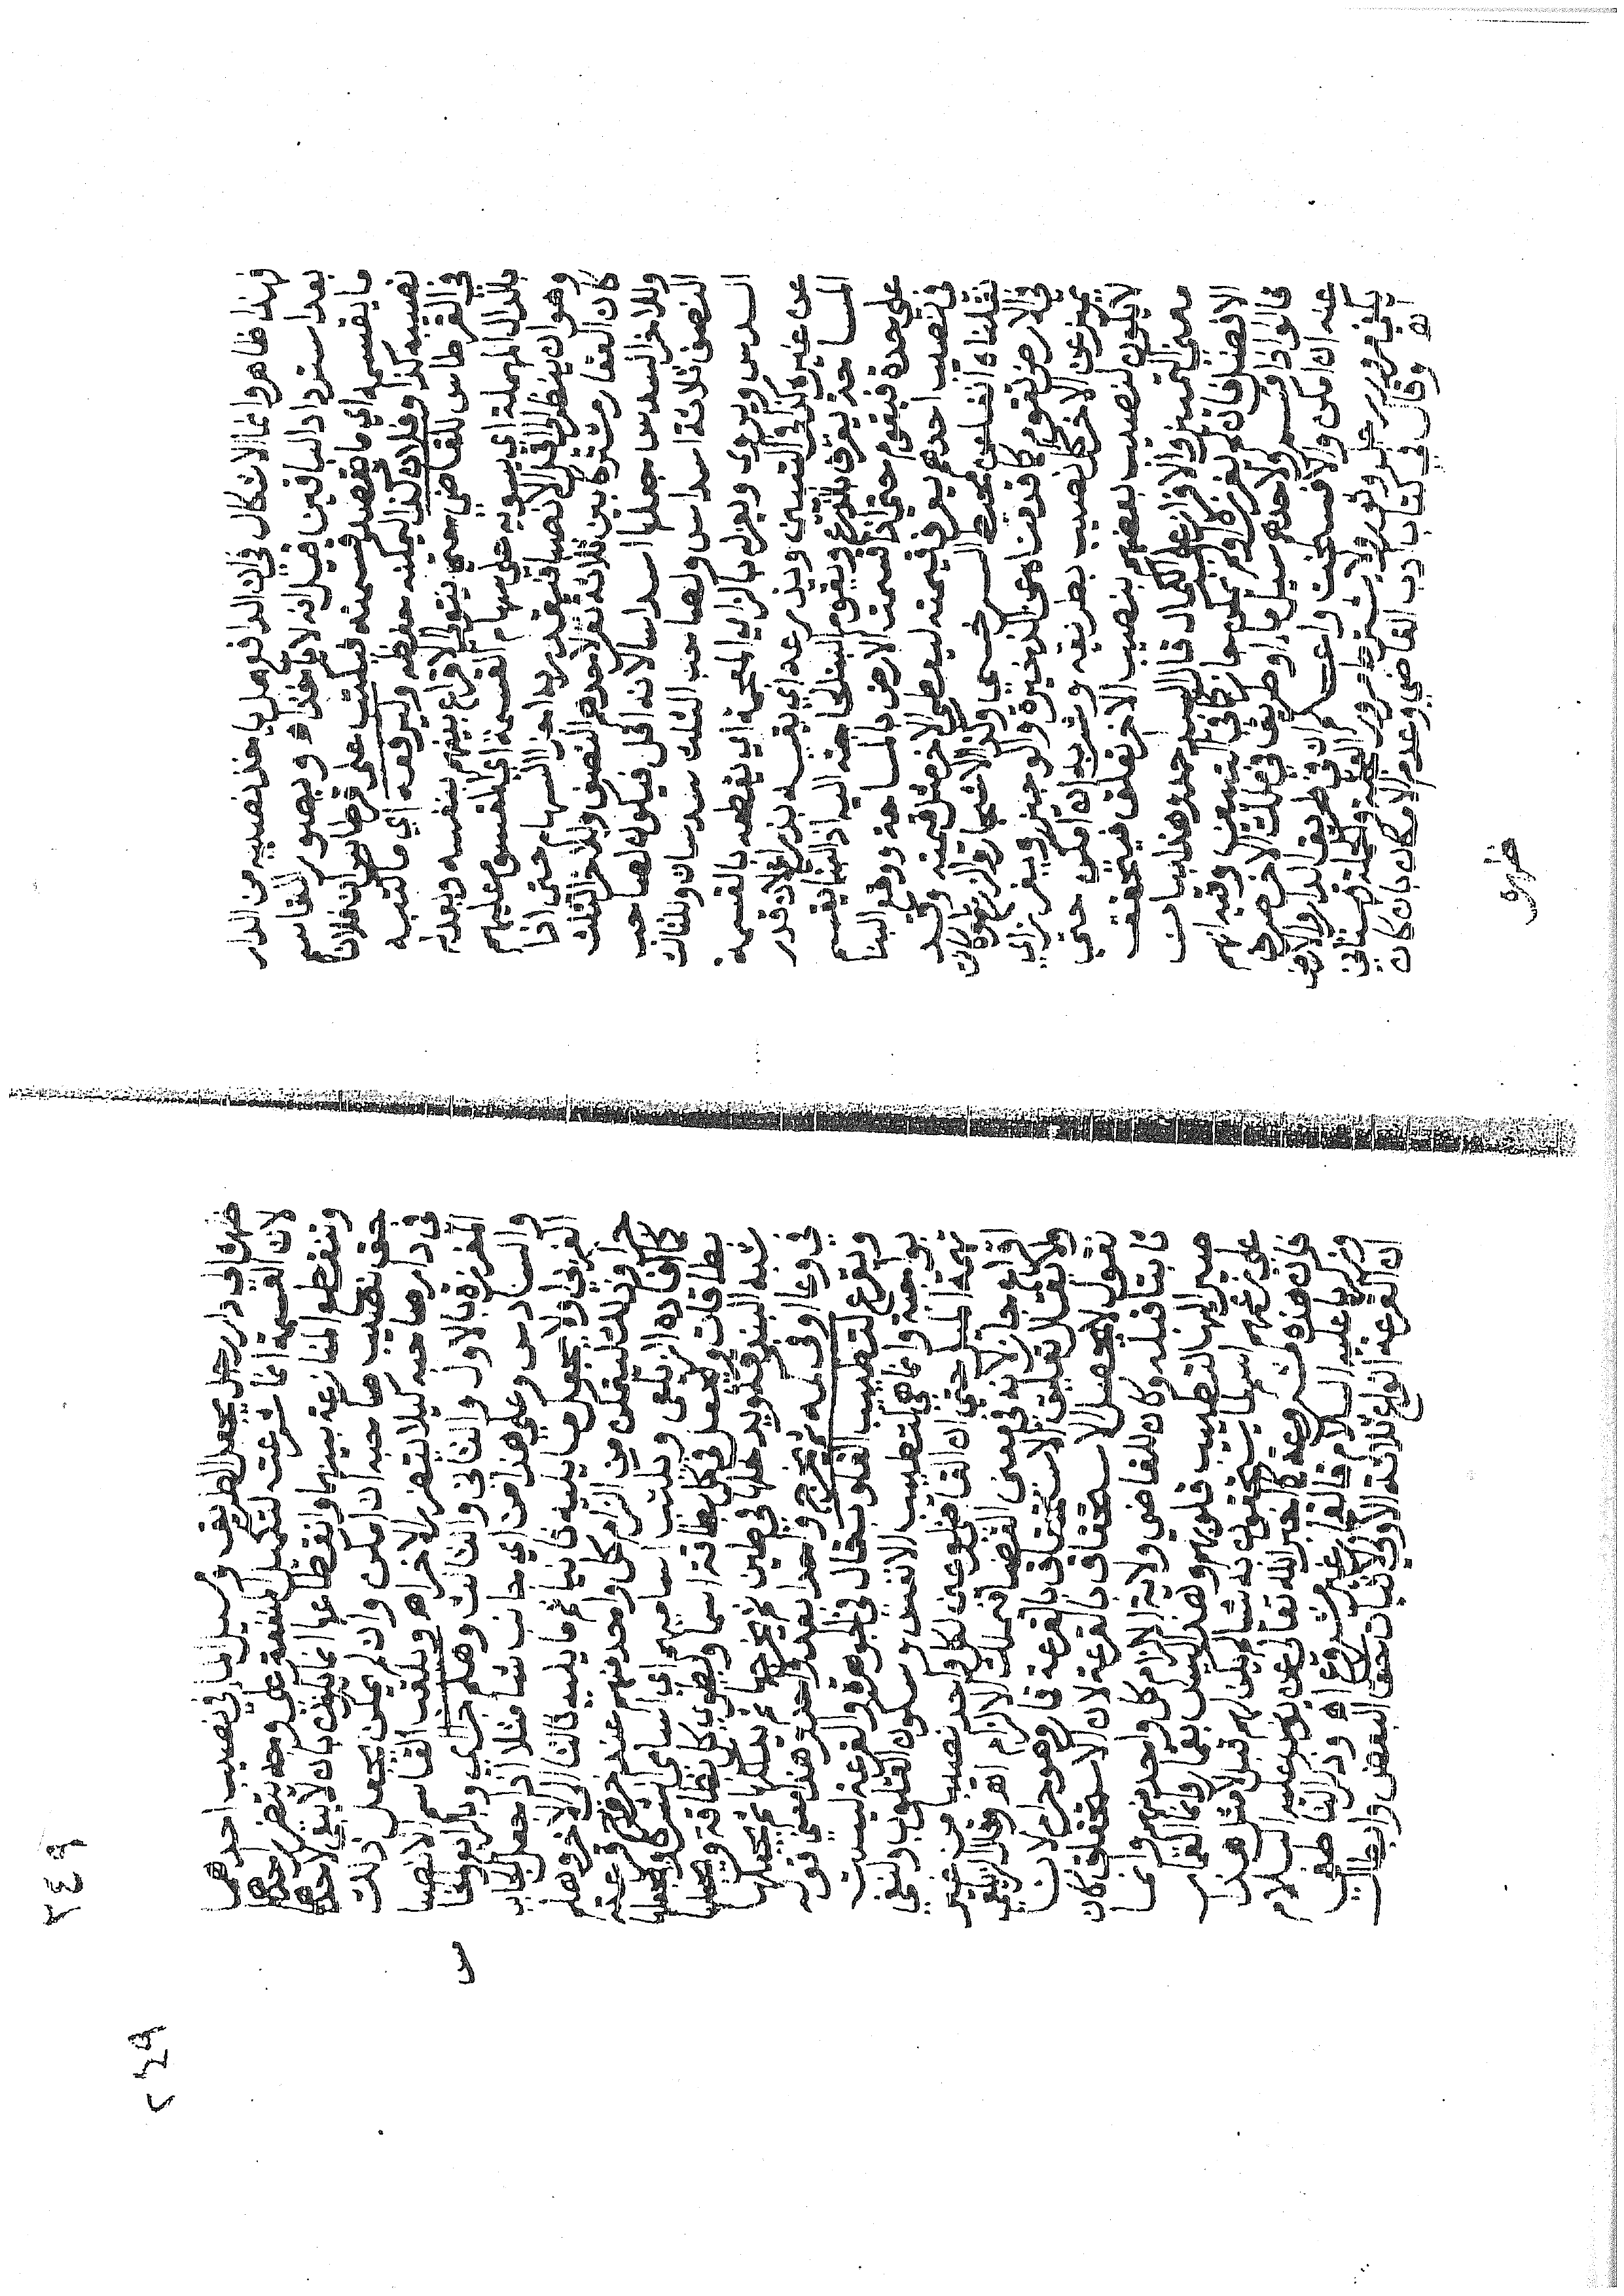 فهذا ظاهر وانما الاشكال في ان الدافع هل ياخذ نصيبه من الدار
بعد استرداد الباقين قيل انه لا ياخذ اه ويصور القاسم
ما يقسمه اي ما قصد قسمته فيكتب على قرطاس ان فلانا
نصيبه كذا وفلان كذا ليمكنه حفظه وليرفعه اي ما كتبه
في القرطاس للقاضي حتى يتولى الاقراع بينهم بنفسه ويعدله
بالدال المهملة اي يسويه على سهام القسمة اي المقسوم عليهم
وهو ان ينظر الى اقل الانصبا فيقدر به اجزا السهام حتى اذا
كان العقار مشتركا بين ثلاثة نفر لاحدهم النصف وللاخر الثلث
وللاخر السدس جعلها اسداسا لانه اقل فيكون لصاحب
النصف ثلاثة اسداس ولصاحب الثلث سدسان وللثالث
السدس ويروى ويعزله بالزاي المعجمة اي يقطعه بالقسمة
عن غيره كذا في التبيين ويذرعه اي يقيسه بذراع لان قدر
المساحة يعرف بالذرع ويقوم البنا لحاجته اليه اذ البنا يقسم
على حدة فيقوم حتى اذا قسمت الارض بالمساحة ووقع البنا
في نصيب احدهم يعرف قيمته ليعطي الاخر مثل قيمته وقد
نقلناه انفا عن محيط السرخسي وكذا الاشجار والزرع لو كان
في الارض تقوم كما قدمناه عن الذخيرة والوجيز ويفرز اي
يميز عن الاخر كل نصيب بطريقه وشربه ان امكن حتى
لا يكون لنصيب بعضهم بنصيب الاخر تعلق فيتحقق
معنى التمييز والافراز على الكمال قال السيد حموي هذا بيان
الافضل فان لم يفرزه او لم يمكن جاز كما في التبيين وفيه انهم
قالوا اذا قسم ولاحدهم مسيل ماء او طريق في ملك الاخر صرف
عنه ان امكن والا فسخت وفي طريق الدار والارض
يكفي مرور وثور ولا يشترط مرور العجلة قهستاني
اه وقال في كتاب ادب القاضي وعدم الامكان بان كان
طريق
٢٤٩
٢٤٩
طريق في دار رجل يجعل الطريق ومسيل الما في نصيب احدهما
لان القسمة انما شرعت لتكميل المنفعة على وجه يتضرر احدهما
وتنقطع المنازعة بينهما وانقطاعها انما يكون بان لا يبقى لاحدهما
حق بنصيب صاحبه ان امكن وان لم يمكن يجعل ذلك
في دار صاحبه كيلا يتضرر الاخر اه ويلقب القاسم الانصبا
المفرزة بالاول والثاني والثالث وهلم جرا اي والرابع والخامس
والسادس وعلى هذا من اي جانب شا مثلا اذا جعل الجانب
الغربي اولا يجعل ما يليه ثانيا ثم ما يليه ثالثا الى الاخر وهلم
جرا وذلك ليتمكن من الزام كل واحد منهم عند خروج قرعته
كما افاده الزيلعي ويكتب اساميهم اي اسامي الشركا ويجعلها
بطاقات ويجعل في كل بطاقة اسما ويطوي كل بطاقة ويجعلها
شبه البندقة ويدخلها في طين ثم يخرجها ثم يدلكها ثم يجعلها
في وعا او في كمه ثم يخرج واحدا بعد واحد وهذا معنى قوله
ويقرع لتطييب القلوب قال في الجوهرة والقرعة ليست
بواجبة وانما هي لتطييب الانفس وسكون القلوب ولنفي
تهمة الميل حتى ان القاضي لو عين لكل واحد نصيبا من غير
اقراع جاز لانه في معنى القضا فيملك الالزام اه وقال الزيلعي
ولا يقال تعليق الاستحقاق بالقرعة قمار وهو حرام لانا
نقول لا يحصل الاستحقاق بالقرعة لان الاستحقاق كان
ثابتا قبله وكان للقاضي ولاية الالزام كل واحد منهم وانما
صير اليها لتطييب قلوبهم وهذا ليس بقمار وانما القمار
على زعمهم اسم لما يستحقون به شيا لم يكن لهم قبل لا مثل هذا
فان هذه مشروعة كما اخبر الله تعالى عن يونس عليه السلام
وزكريا عليه السلام فالقمار غير مشروع اه وذكر الناطفي
ان القرعة انواع ثلاثة الاولى لاثبات حق البعض وابطال